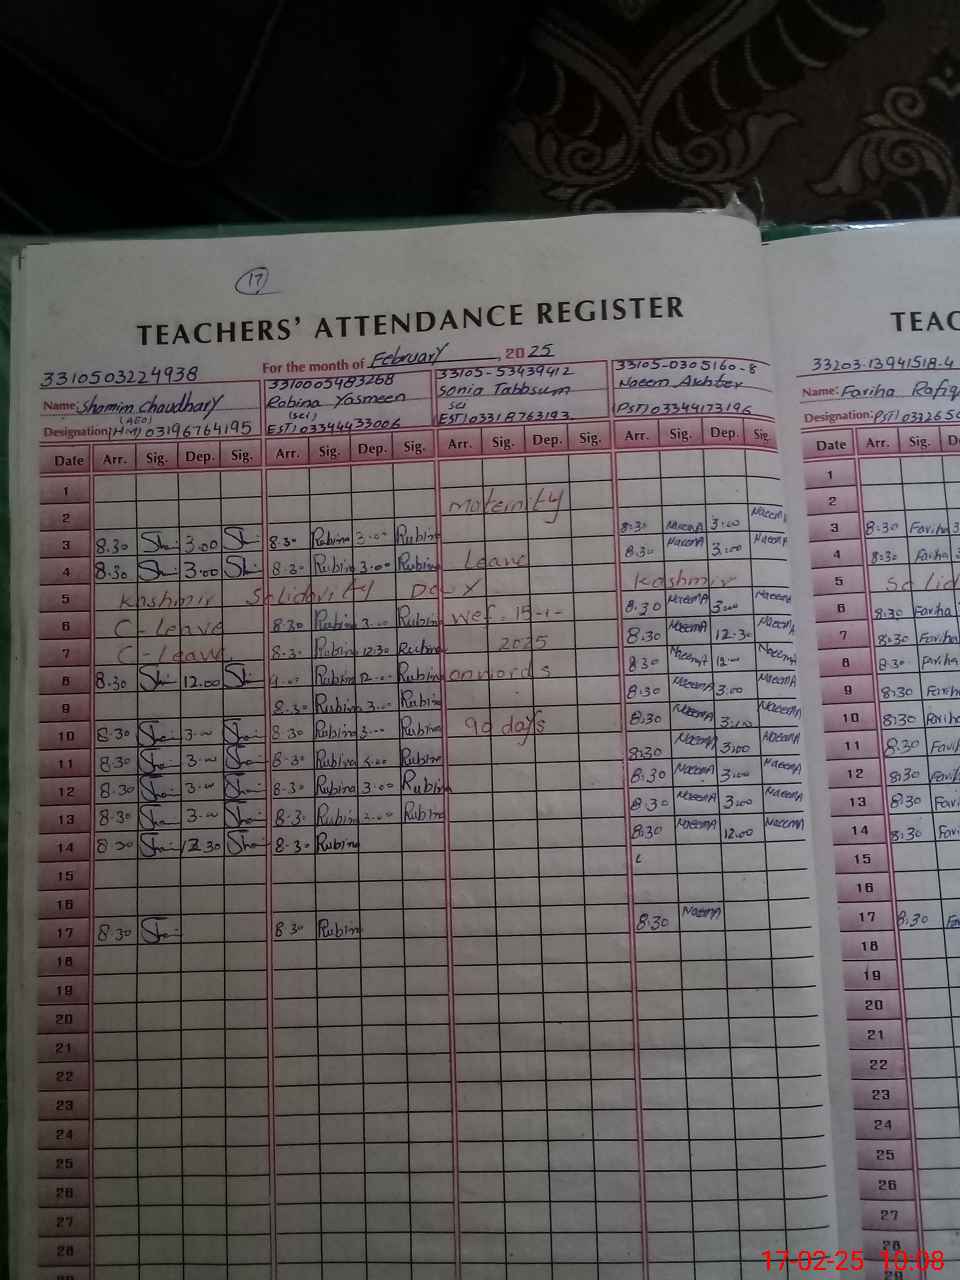 17
TEACHERS' ATTENDANCE REGISTER
For the month of February, 2025
3310503224938 3310005483268 33105-53439412 33105-0305160-8
Name: Shamim Chaudhary Robina Yasmeen Sonia Tabbsum Naeem Akhter
(AEO) (sci) sci
Designation: (HM) 03196764195 EST) 03344433006 EST) 03318763193 (PST) 03344173196
Date Arr. Sig. Dep. Sig. Arr. Sig. Dep. Sig. Arr. Sig. Dep. Sig. Arr. Sig. Dep. Sig.
1
2 Maternity
3 8.30 3.00 8.30 Rubina 3.00 Rubina 8:30 NaeemA 3:00 NaeemA
4 8.30 3.00 8.30 Rubina 3.00 Rubina Leave 8.30 NaeemA 3:00 NaeemA
5 Kashmir Solidarity Day Kashmir
6 C-leave 8.30 Rubina 3.00 Rubina wef. 15-1- 8.30 NaeemA 3:00 NaeemA
7 C-leave 8.30 Rubina 12.30 Rubina 2025 8.30 NaeemA 12.30 NaeemA
8 8.30 12.00 Rubina 12.00 Rubina onwords 8.30 NaeemA 12.00 NaeemA
9 8.30 Rubina 3.00 Rubina 8.30 NaeemA 3.00 NaeemA
10 8.30 3.00 8.30 Rubina 3.00 Rubina 90 days 8.30 NaeemA 3.00 NaeemA
11 8.30 3.00 8.30 Rubina Rubina 8:30 NaeemA 3:00 NaeemA
12 8.30 3.00 8.30 Rubina 3.00 Rubina 8:30 NaeemA 3:00 NaeemA
13 8.30 3.00 8.30 Rubina Rubina 8.30 NaeemA 3:00 NaeemA
14 8.30 12.30 8.30 Rubina 8:30 NaeemA 12.00 NaeemA
15
16
17 8.30 8.30 Rubina 8.30 NaeemA
18
19
20
21
22
23
24
25
26
27
28
TEAC
33203-13941518-4
Name: Fariha Rafiq
Designation: PST) 032650
Date Arr. Sig. D
1
2
3 8:30 Fariha 3
4 8:30 Fariha
5 Solid
6 8:30 Fariha
7 8:30 Fariha
8 8.30 Fariha
9 8:30 Fariha
10 8:30 Fariha
11 8.30 Fari
12 8:30 Fari
13 8:30 Fari
14 8:30 Fari
15
16
17 8.30 Fa
18
19
20
21
22
23
24
25
26
27
28
17-02-25 10:08